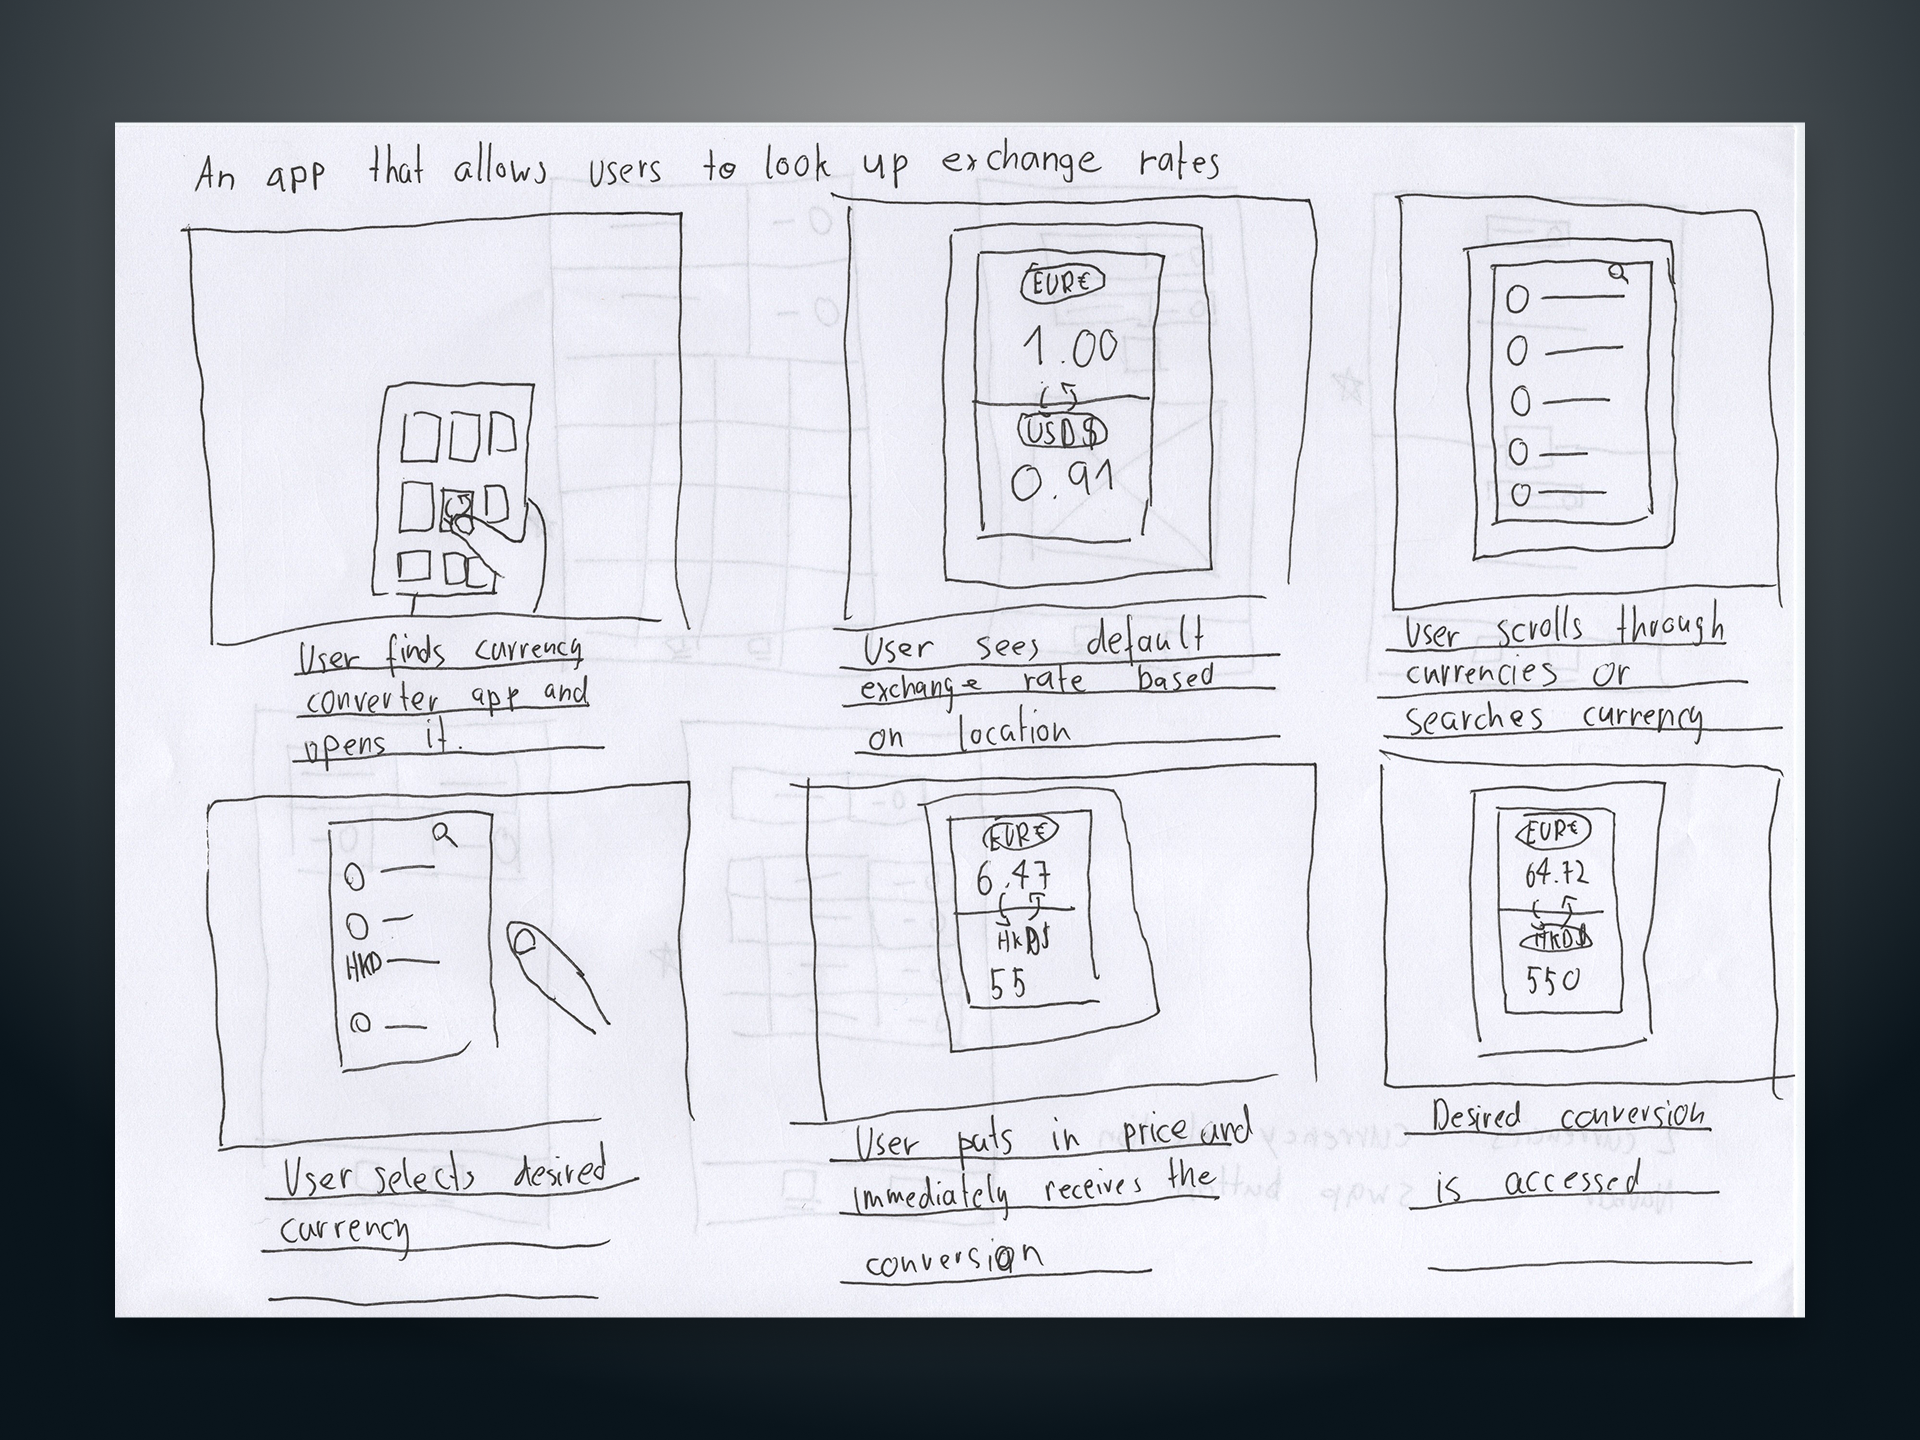 An app that allows users to look up exchange rates
EUR€
1.00
USD$
0.91
User finds currency
converter app and
opens it.
User sees default
exchange rate based
on location
User scrolls through
currencies or
searches currency
HKD
User selects desired
currency
EUR€
6.47
HKD$
55
User puts in price and
immediately receives the
conversion
EUR€
64.72
HKD$
550
Desired conversion
is accessed